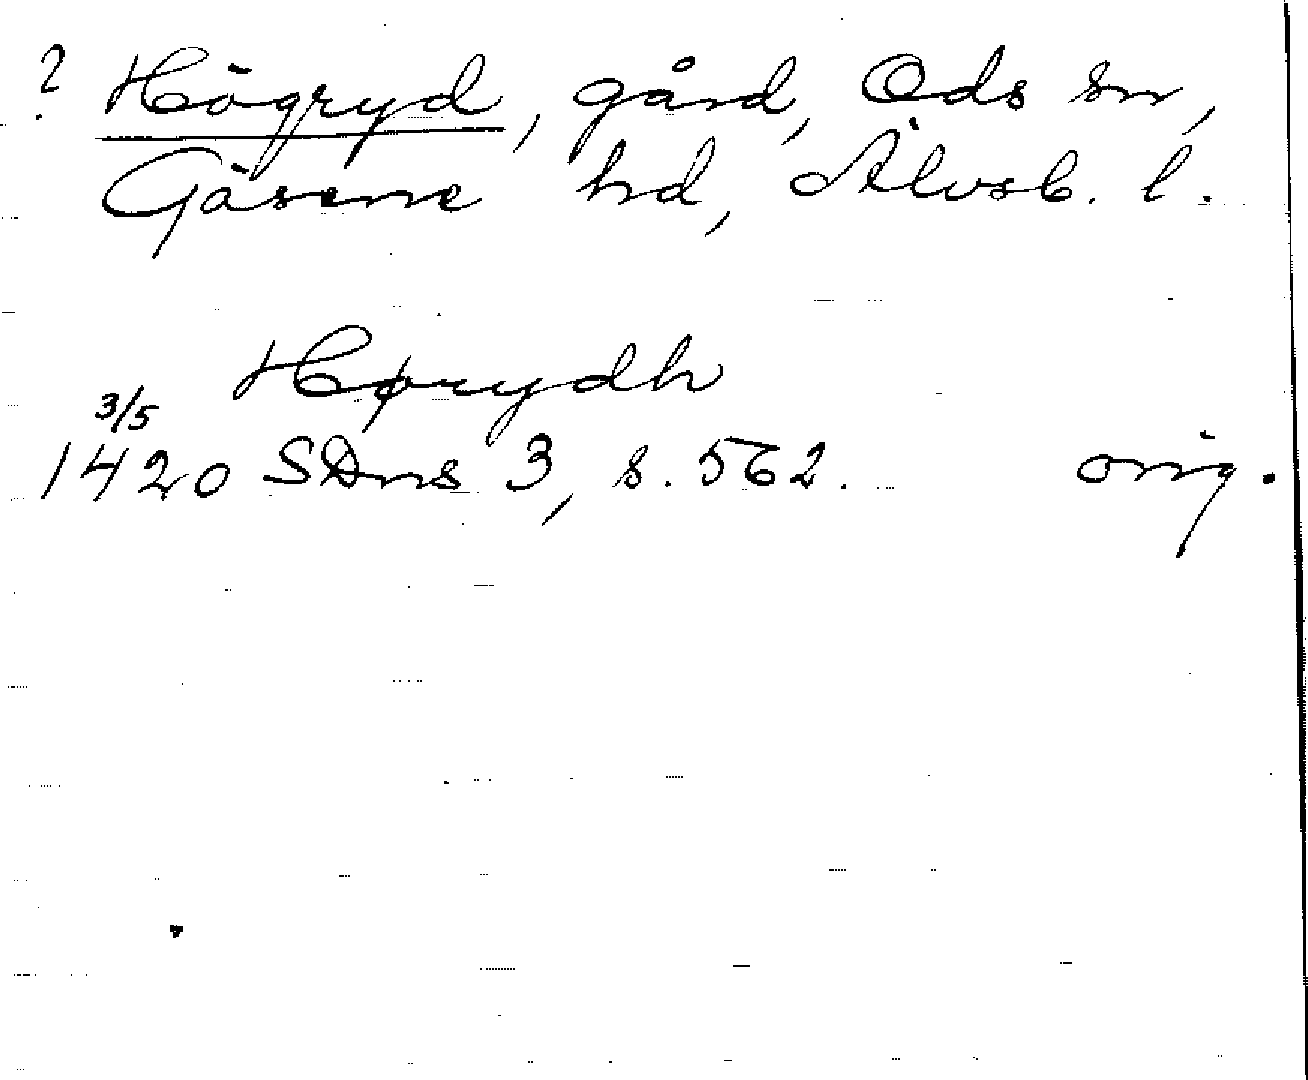 ? Högryd, gård, Ods sn,
Gäsene hd, Älvsb. l.
Hørydh
3/5
1420 SDns 3, s. 562. orig.